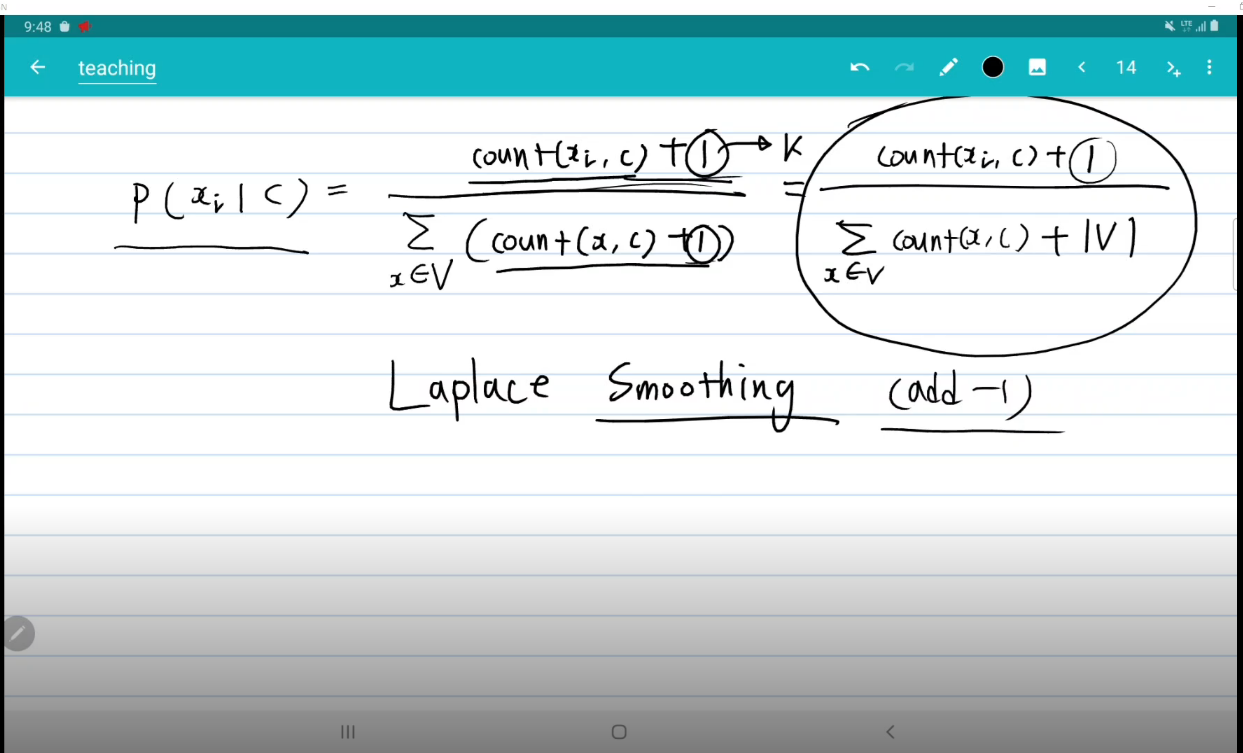 9:48 LTE
teaching 14
P(xᵢ|C) = count(xᵢ, c) + 1 → K / Σ x∈V (count(x, c) + 1) = count(xᵢ, c) + 1 / Σ x∈V count(x, c) + |V|
Laplace Smoothing (add-1)